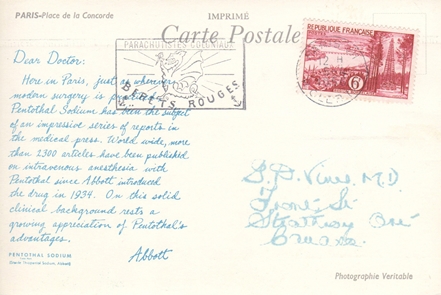 PARIS-Place de la Concorde
IMPRIMÉ
Carte Postale
PARACHUTISTES COLONIAUX
BERETS ROUGES
REPUBLIQUE FRANÇAISE
6F
12 H
Dear Doctor:
Here in Paris, just as wherever
modern surgery is practiced,
Pentothal Sodium has been the subject
of an impressive series of reports in
the medical press. World wide, more
than 2300 articles have been published
on intravenous anesthesia with
Pentothal since Abbott introduced
the drug in 1934. On this solid
clinical background rests a
growing appreciation of Pentothal's
advantages.
Abbott
PENTOTHAL SODIUM
Sodium, Abbott)
M.D.
Front St
Strathroy Ont
Canada
Photographie Veritable